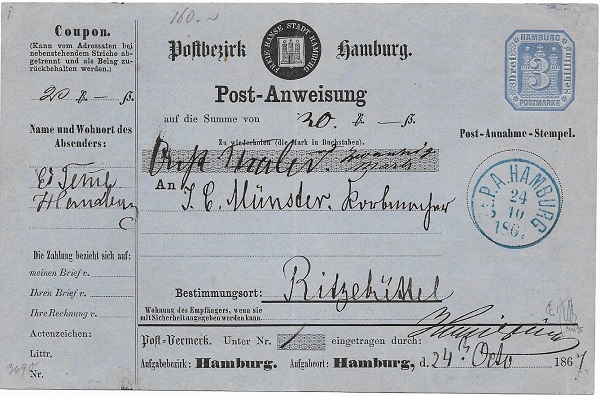 160.~
Coupon.
(Kann vom Adressaten bei
nebenstehendem Striche abgetrennt und als Belag zurückbehalten werden.)
20 ₰ — ß.
Name und Wohnort des
Absenders:
Hamburg
Die Zahlung bezieht sich auf:
meinen Brief v.
Ihren Brief v.
Ihre Rechnung v.
Actenzeichen:
Littr.
Nr.
Postbezirk Hamburg.
FREIE HANSE STADT HAMBURG
Post-Anweisung
auf die Summe von 20. ₰ — ß.
Zu wiederholen (die Mark in Buchstaben).
Thaler. zwanzig
Mark
An J. C. Münster. Korbmacher
Bestimmungsort: Ritzebüttel
Wohnung des Empfängers, wenn sie
mit Sicherheit angegeben werden kann.
Post-Vermerk. Unter Nr. 1 eingetragen durch:
Aufgabebezirk: Hamburg. Aufgabeort: Hamburg, d. 24 Octo 1867
HAMBURG
Drei Schilling
3
POSTMARKE
Post-Annahme-Stempel.
P.A. HAMBURG
24
10
186